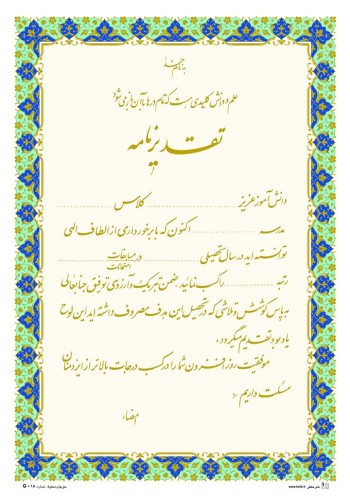 به نام خدا
علم و دانش کلیدی است که تمام درها با آن باز می شود
تقدیرنامه
دانش آموز عزیز .................... کلاس ....................
مدرسه .................... اکنون که با برخورداری از الطاف الهی
توانسته اید در سال تحصیلی .................... در مسابقات
امتحانات
رتبه .................... را کسب نمائید ضمن تبریک و آرزوی توفیق جنابعالی
به پاس کوشش و تلاشی که در تحصیل این هدف مصروف داشته اید این لوح
یادبود تقدیم میگردد.
موفقیت روز افزون شما را در کسب درجات بالاتر از ایزد منان
مسئلت داریم
امضاء